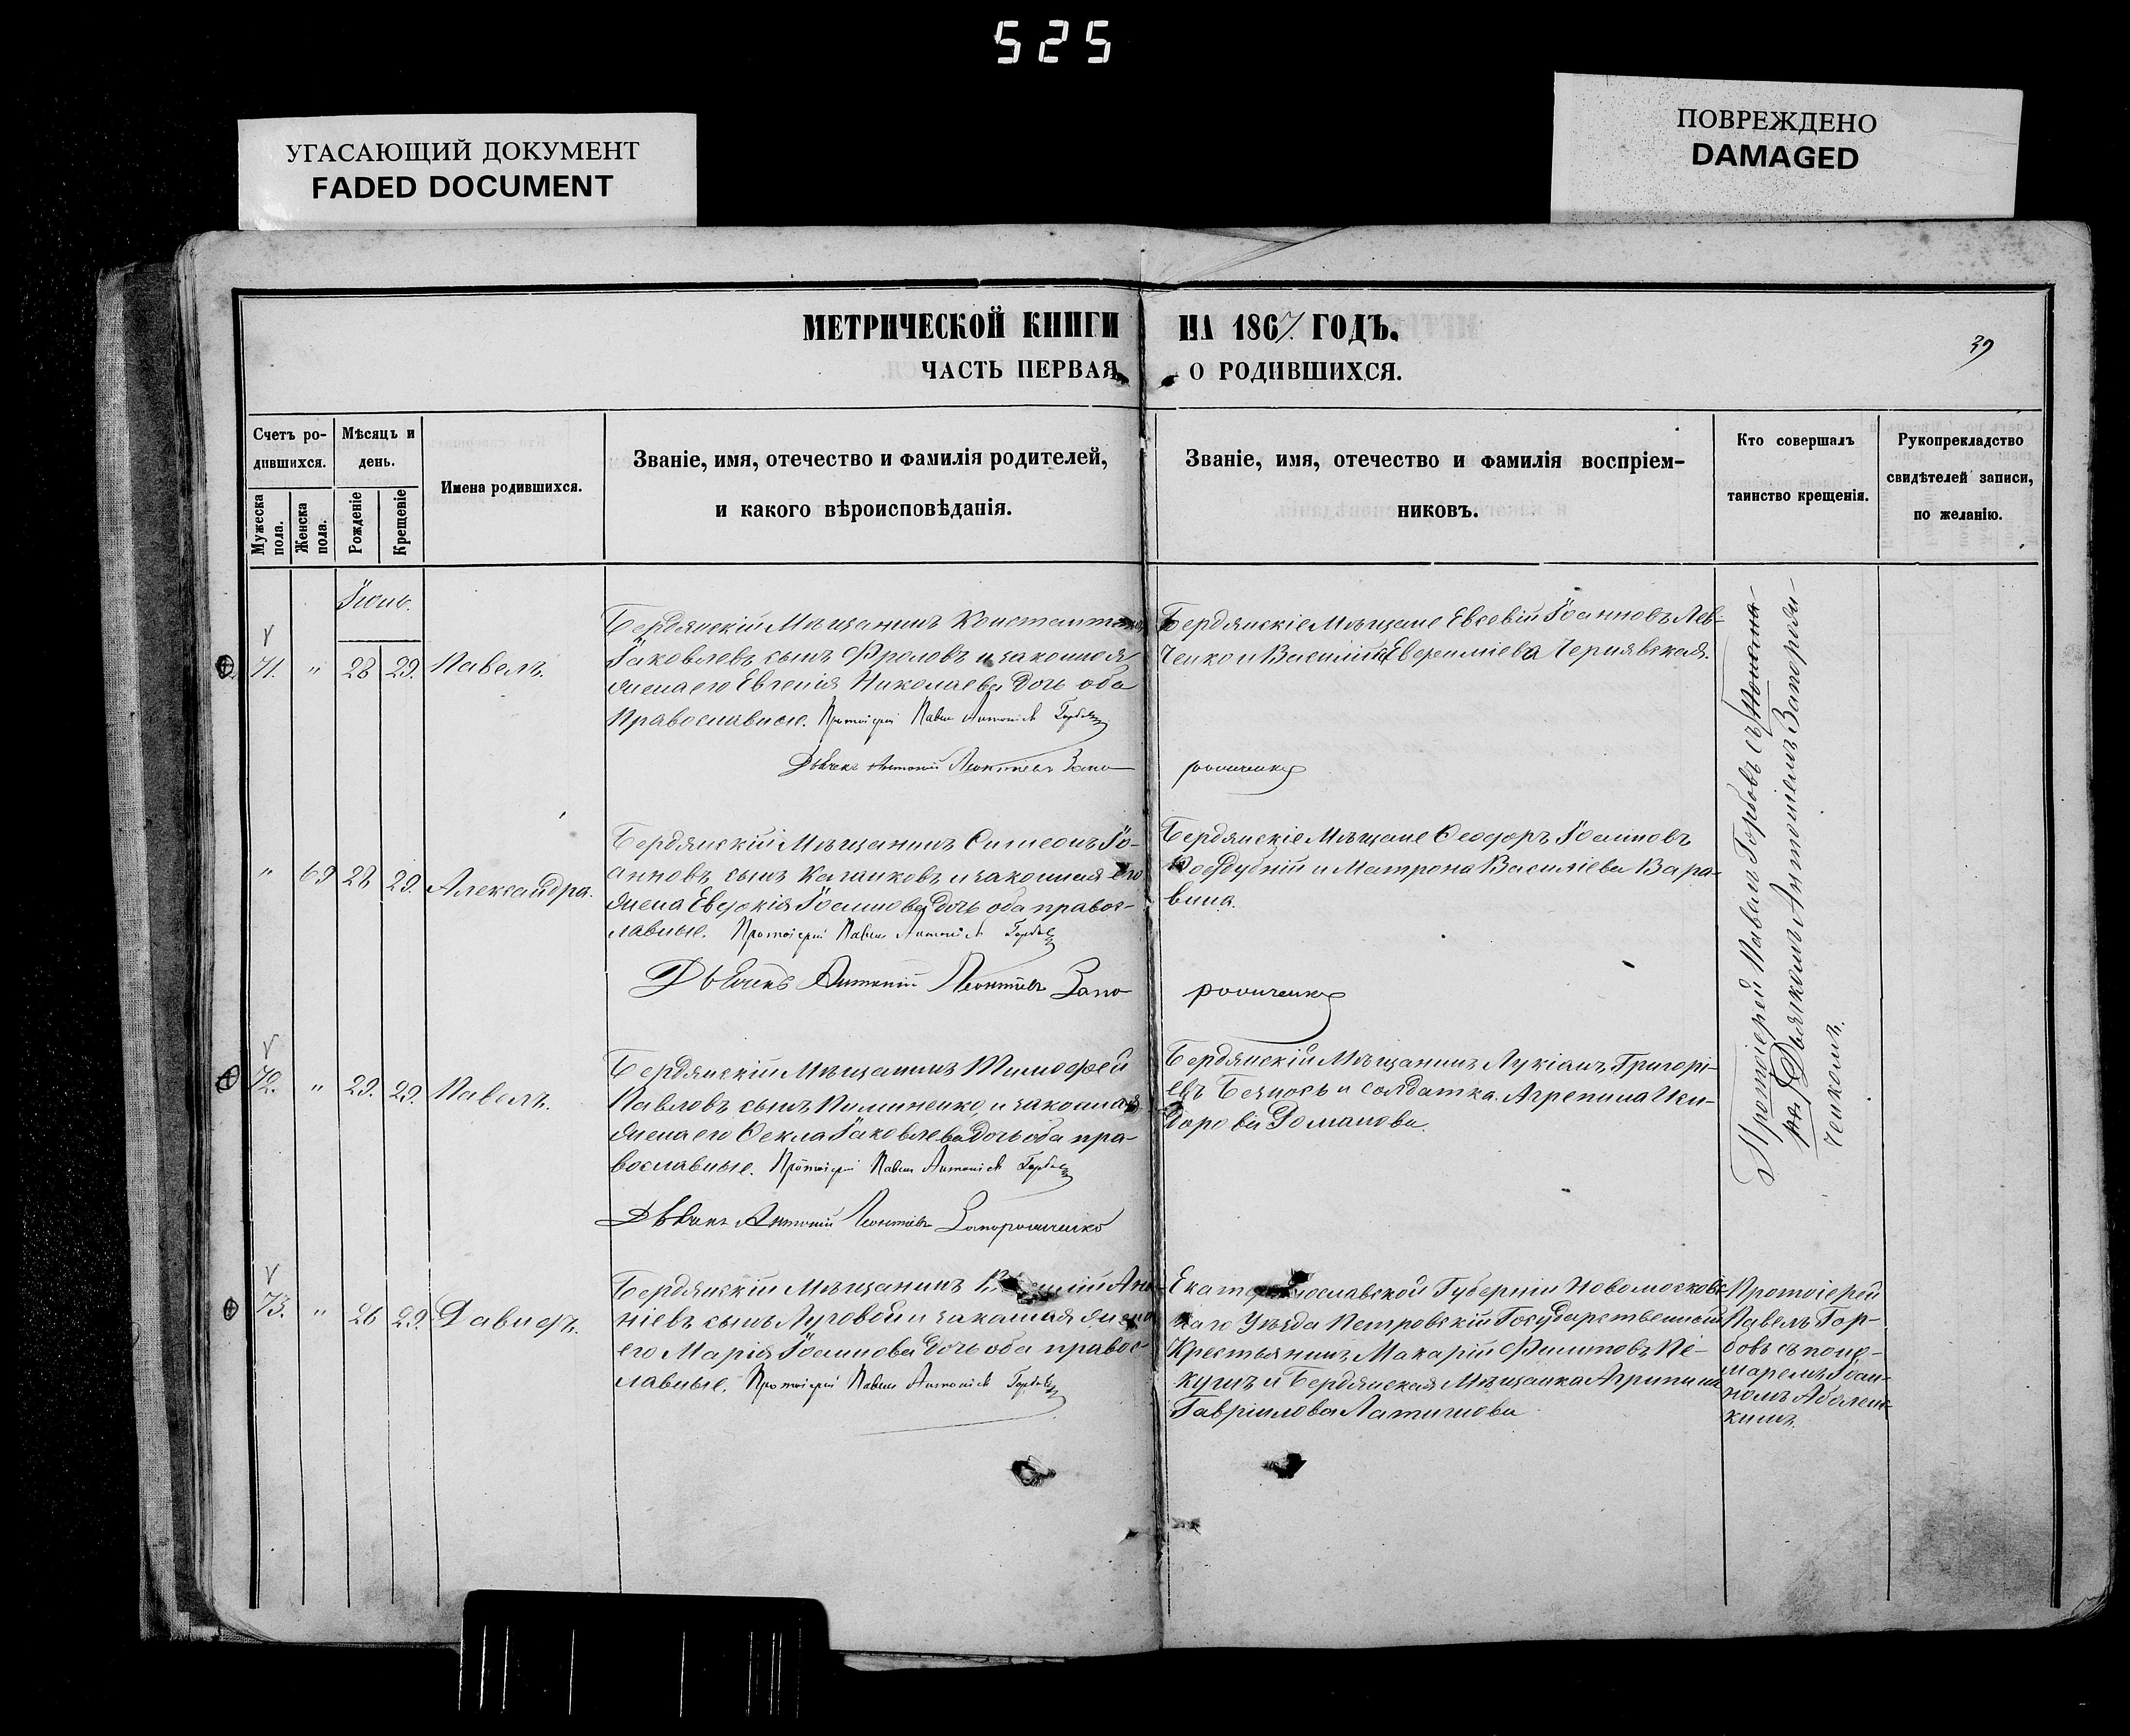 525
УГАСАЮЩИЙ ДОКУМЕНТ
FADED DOCUMENT
ПОВРЕЖДЕНО
DAMAGED
МЕТРИЧЕСКОЙ КНИГИ НА 1867 ГОДЪ.
ЧАСТЬ ПЕРВАЯ, О РОДИВШИХСЯ.
39
Счетъ ро-
дившихся.
Мужеска пола.
Женска пола.
Мѣсяцъ и
день.
Рожденіе
Крещеніе
Имена родившихся.
Званіе, имя, отечество и фамилія родителей,
и какого вѣроисповѣданія.
Званіе, имя, отечество и фамилія воспріем-
никовъ.
Кто совершалъ
таинство крещенія.
Рукоприкладство
свидѣтелей записи,
по желанію.
71. " 28 29. Павелъ.
Бердянскій Мѣщанинъ Константинъ
Іаковлевъ сынъ Фроловъ и законная
жена его Евгенія Николаева дочь оба
Православные. Протоіерей Павелъ Антоніевъ
Дьячекъ Антоній Леонтіевъ Запо
рожченко
Бердянскіе Мѣщане Евсевій Іоанновъ Лев-
ченко и Чернявская.
" 69 28 29. Александра.
Бердянскій Мѣщанинъ Симеонъ Іо-
анновъ сынъ и законная его
жена Евдокія Іоаннова дочь оба правос-
лавные. Протоіерей Павелъ Антоніевъ
Дьячекъ Антоній Леонтіевъ Запо
рожченко
Бердянскіе Мѣщане Ѳеодоръ Іоанновъ
и Матрона Василіева Вара-
вина.
72. " 29. 29. Павелъ.
Бердянскій Мѣщанинъ Тимофей
Павловъ сынъ Пилипенко, и законная
жена его Ѳекла Іаковлева дочь оба пра-
вославные. Протоіерей Павелъ Антоніевъ
Дьячекъ Антоній Леонтіевъ Запорожченко
Бердянскій Мѣщанинъ Лукіанъ Григорі-
евъ и солдатка Агрепина Иси-
дорова Романова.
Протоіерей Павелъ Горбовъ съ
Дьячкомъ Антоніемъ Запорож-
ченкомъ.
73. " 26 29. Давидъ.
Бердянскій Мѣщанинъ
ніевъ сынъ Луговой и законная жена
его Марія Іоаннова дочь оба правос-
лавные. Протоіерей Павелъ Антоніевъ
Екатеринославской Губерніи Новомосковс-
каго Уѣзда Петровскій Государственный
Крестьянинъ Макарій Филиповъ
и Бердянская Мѣщанка Агрипина
Гавріилова
Протоіерей
Павелъ Гор-
бовъ съ поно-
маремъ Іоан-
номъ